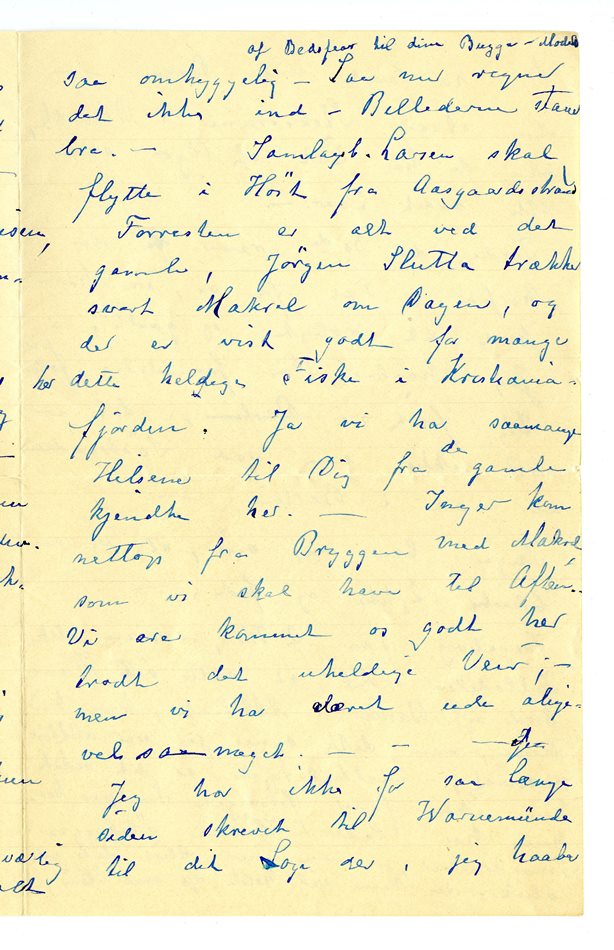 af Bedsfear til din Bugge-Modn
saa omhyggelig – Saa nu regner
det ikke ind – Billederne staar
bra. – Samlagsb. Larsen skal
flytte i Høst fra Aasgaardsstrand
Forresten er alt ved det
gamle, Jörgen Slutta trækker
svart Makrel om Dagen, og
der er vist godt for mange
her dette heldige Fiske i Kristiania-
fjorden. Ja vi ha saamange
Hilsene til Dig fra de gamle
kjendte her. – Inger kom
nettop fra Bryggen med Makrel
som vi skal have til Aften.
Vi ere kommet os godt her
trodt det uheldige Veir, –
men vi ha været ude alige-
vel saa meget. – – –
Jeg har ikke for saa længe
siden skrevet til Warnemünde
til dit Loge der, jeg haaber